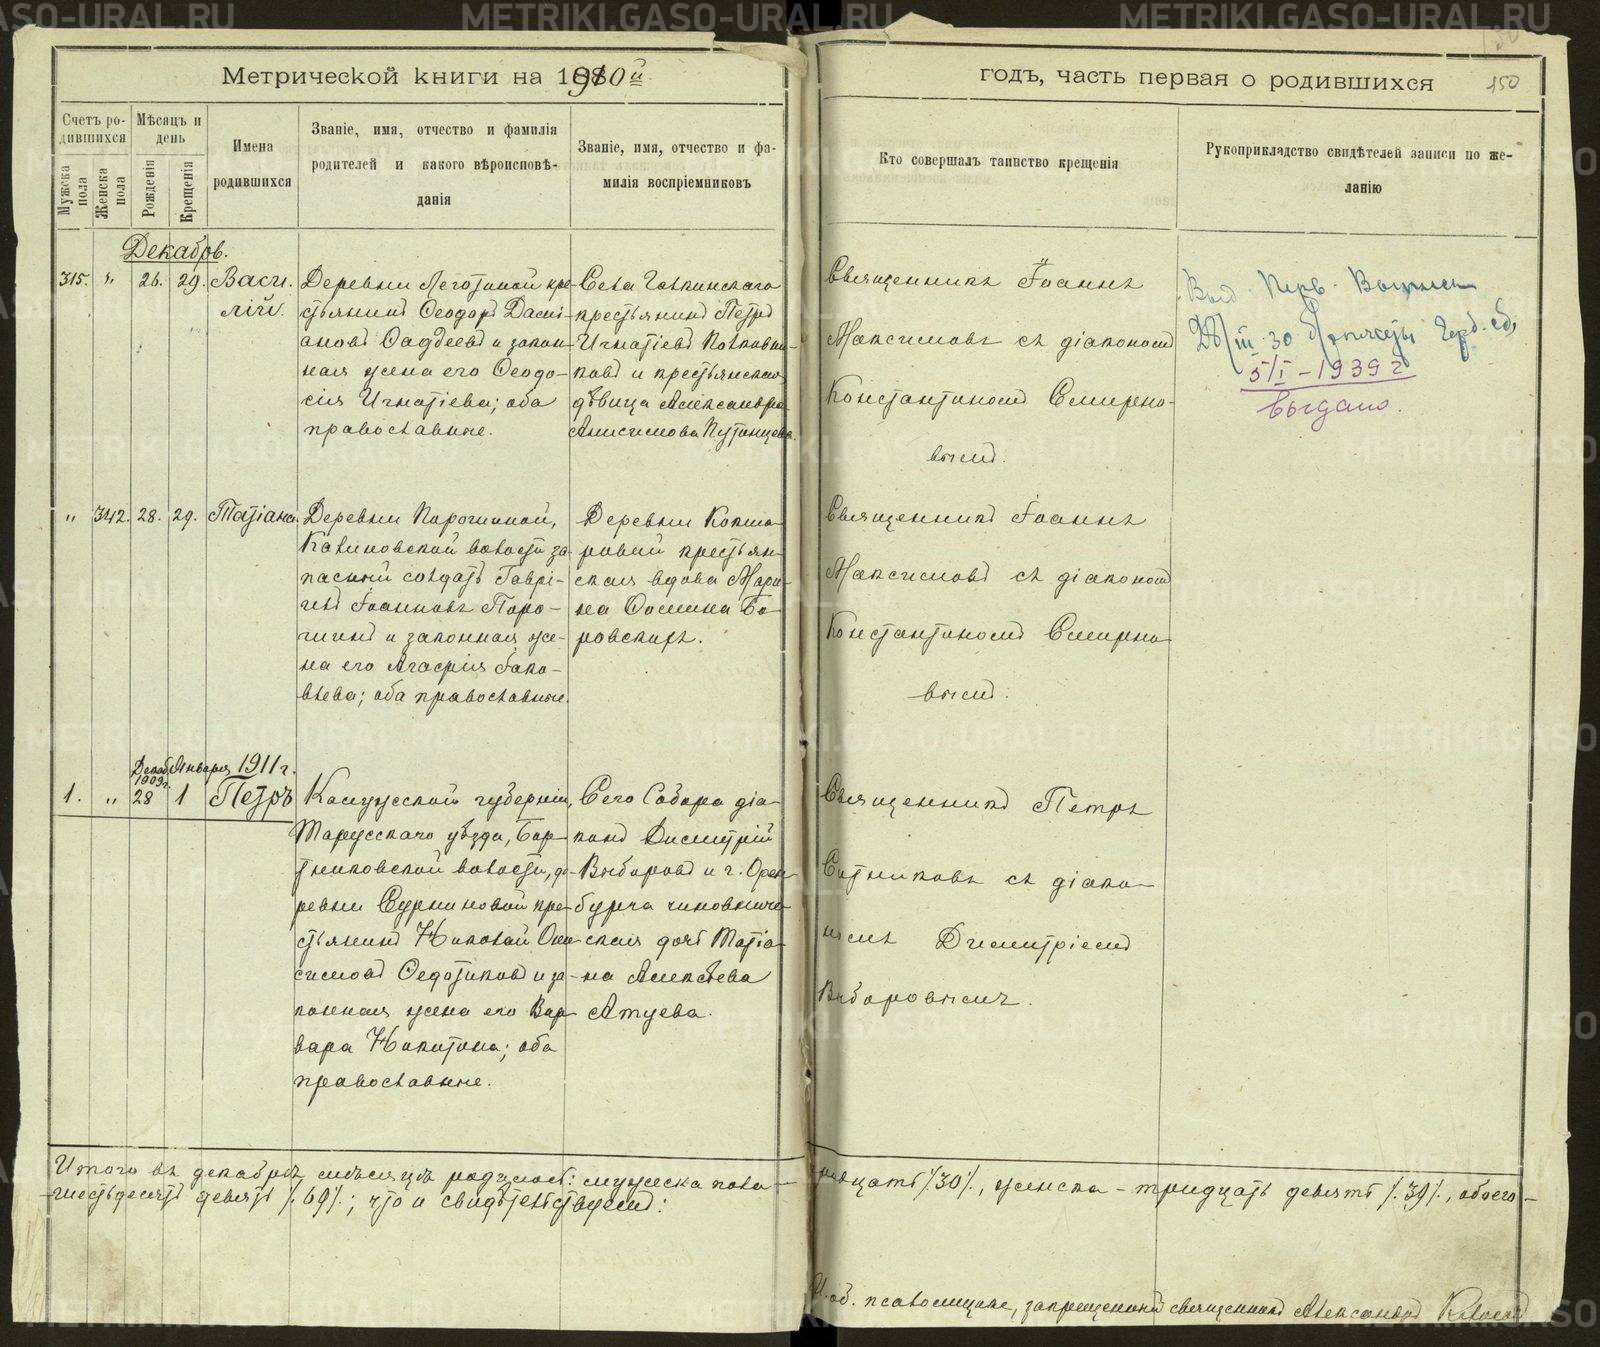 Метрической книги на 1910й
годъ, часть первая о родившихся
150
Счетъ ро-
дившихся
Мужска пола
Женска пола
Мѣсяцъ и
день
Рожденія
Крещенія
Имена
родившихся
Званіе, имя, отчество и фамилія
родителей и какого вѣроисповѣ-
данія
Званіе, имя, отчество и фа-
милія воспріемниковъ
Кто совершалъ таинство крещенія
Рукоприкладство свидѣтелей записи по же-
ланію
Декабрь.
315. " 26. 29. Васи-
лій.
Деревни Леготиной кре-
стьянинъ Ѳеодоръ Дамі-
ановъ Ѳаддеевъ и закон-
ная жена его Ѳеодо-
сія Игнатіева; оба
православные.
Села Галкинскаго
крестьянинъ Петръ
Игнатіевъ Половни-
ковъ и крестьянская
дѣвица Александра
Анисимова Путинцева.
Священникъ Іоаннъ
Максимовъ съ діакономъ
Константиномъ Смирно-
вымъ.
5/I-1939 г
Выдано.
" 342. 28. 29. Татіана.
Деревни Порошиной,
Калиновской волости за-
пасный солдатъ Гаврі-
илъ Іоанновъ Поро-
шинъ и законная же-
на его Агафія Іако-
влева; оба православные.
Деревни Кокша-
ровой крестьян-
ская вдова Мари-
на Ѳомина Бо-
ровскихъ.
Священникъ Іоаннъ
Максимовъ съ діакономъ
Константиномъ Смирно-
вымъ.
Декаб. 1909г. Января 1911г.
1. " 28 1 Петръ
Калужской губерніи,
Тарусскаго уѣзда, Бар-
тниковской волости, де-
ревни кре-
стьянинъ Николай Они-
симовъ Ѳедотиковъ и за-
конная жена его Вар-
вара Никитина; оба
православные.
Сего Собора діа-
конъ Димитрій
Выборовъ и г. Орен-
бурга чиновниче-
ская дочь Татіа-
на Алексѣева
Агуева.
Священникъ Петръ
Сотниковъ съ діако-
номъ Димитріемъ
Выборовымъ.
Итого въ декабрѣ мѣсяцѣ родилось: мужеска пола - тридцать /30/, женска - тридцать девять /39/, обоего -
шестьдесятъ девять /69/; что и свидѣтельствуемъ:
И. об. псаломщика, запрещенный священникъ Александръ
METRIKI.GASO-URAL.RU